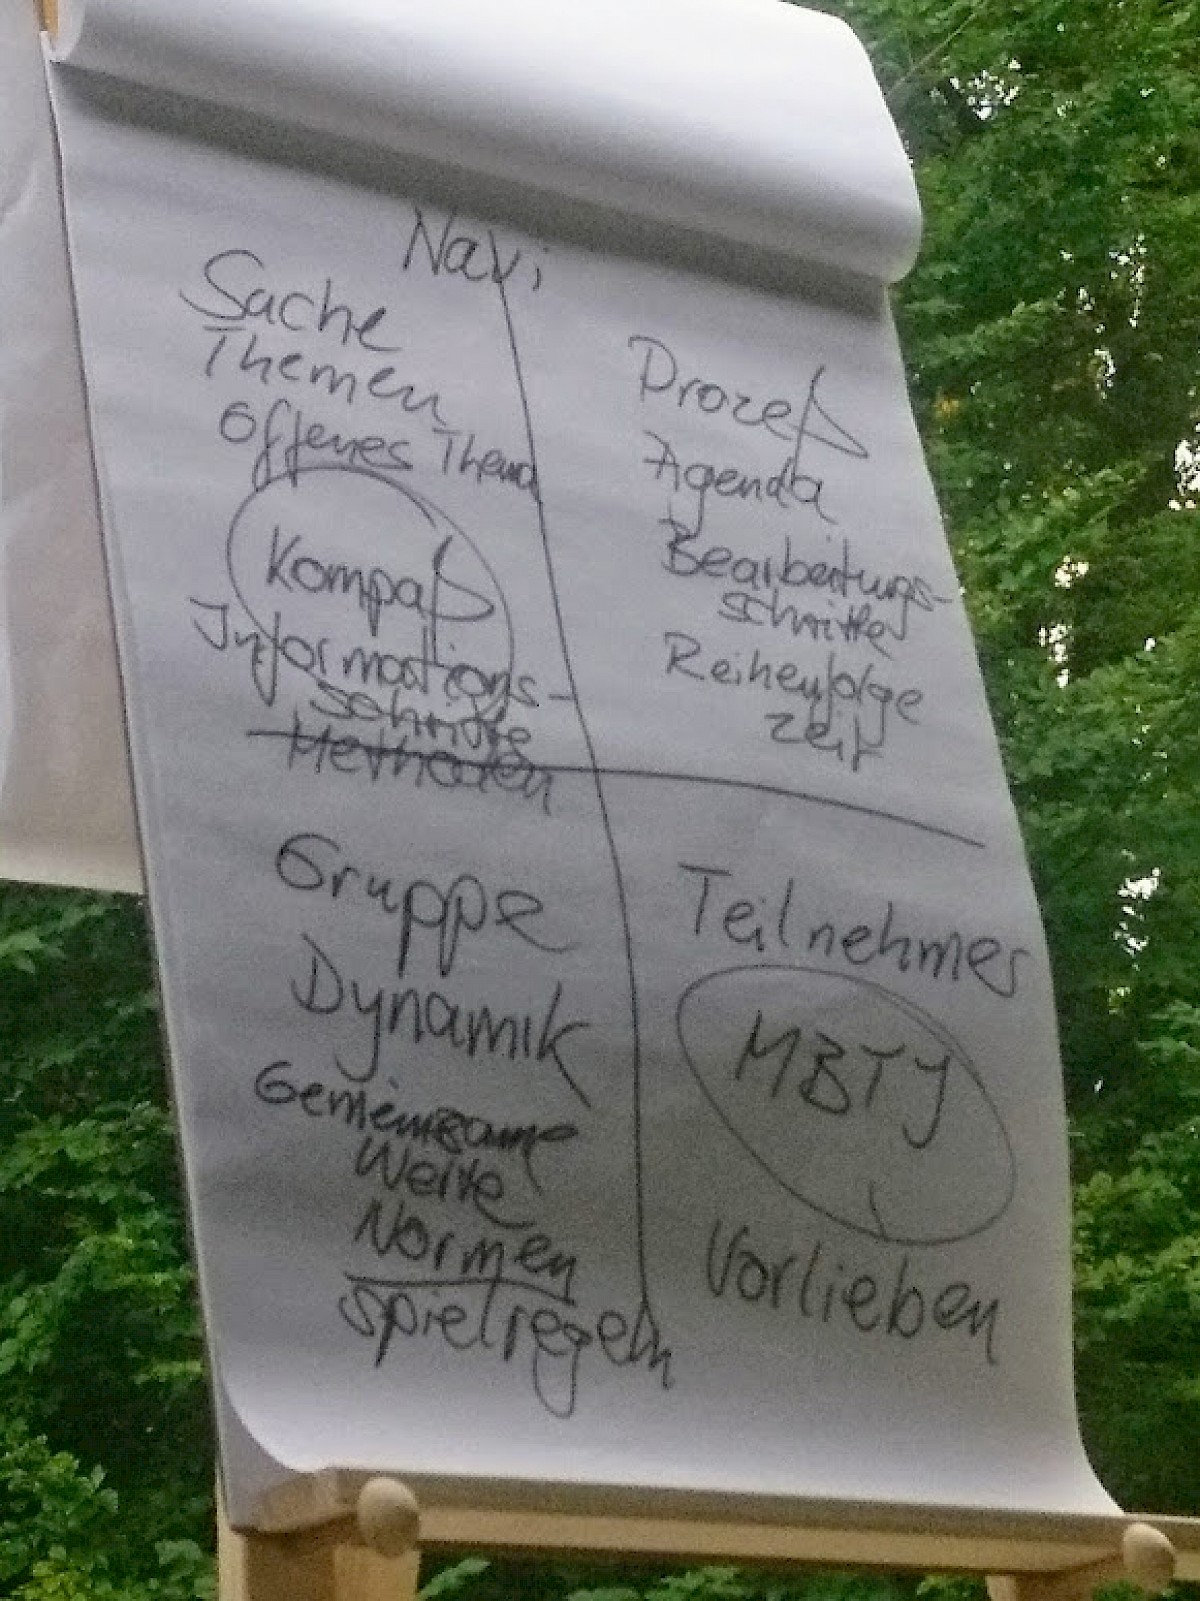 Navi
Sache
Themen
Offenes Thema
Kompaß
Informations-
schritte
Methoden
Prozeß
Agenda
Bearbeitungs-
schritte
Reihenfolge
Zeit
Gruppe
Dynamik
Gemeinsame
Werte
Normen
Spielregeln
Teilnehmer
MBTJ
Vorlieben